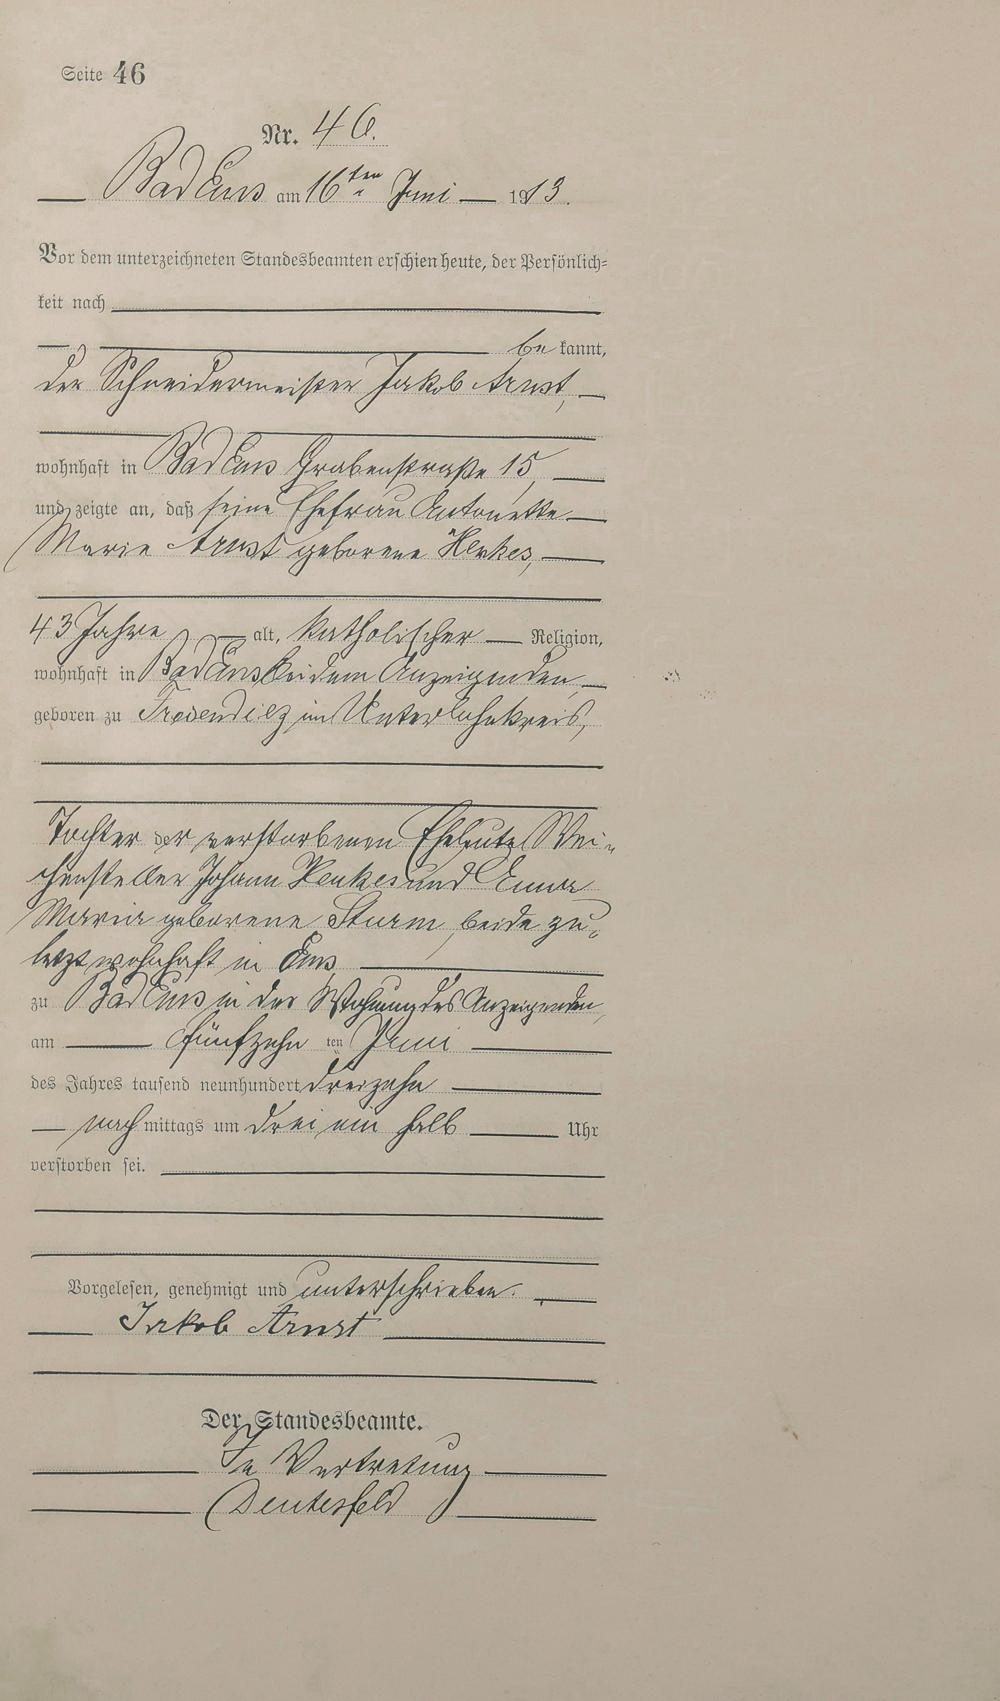 Seite 46
Nr. 46.
Bad Ems am 16ten Juni 1913.
Vor dem unterzeichneten Standesbeamten erschien heute, der Persönlich-
keit nach
be kannt,
der Schneidermeister Jakob Arnst,
wohnhaft in Bad Ems Grabenstraße 15,
und zeigte an, daß seine Ehefrau Antonette
Marie Arnst geborene Henkes,
43 Jahre alt, katholischer Religion,
wohnhaft in Bad Ems bei dem Anzeigenden,
geboren zu Freiendiez im Unterlahnkreis,
Tochter der verstorbenen Eheleute Wei-
chensteller Johann Henkes und
Maria geborene Sturm, beide zu-
letzt wohnhaft in Ems,
zu Bad Ems in der Wohnung des Anzeigenden,
am fünfzehn ten Juni
des Jahres tausend neunhundert dreizehn
nach mittags um drei ein halb Uhr
verstorben sei.
Vorgelesen, genehmigt und unterschrieben.
Jakob Arnst
Der Standesbeamte.
In Vertretung